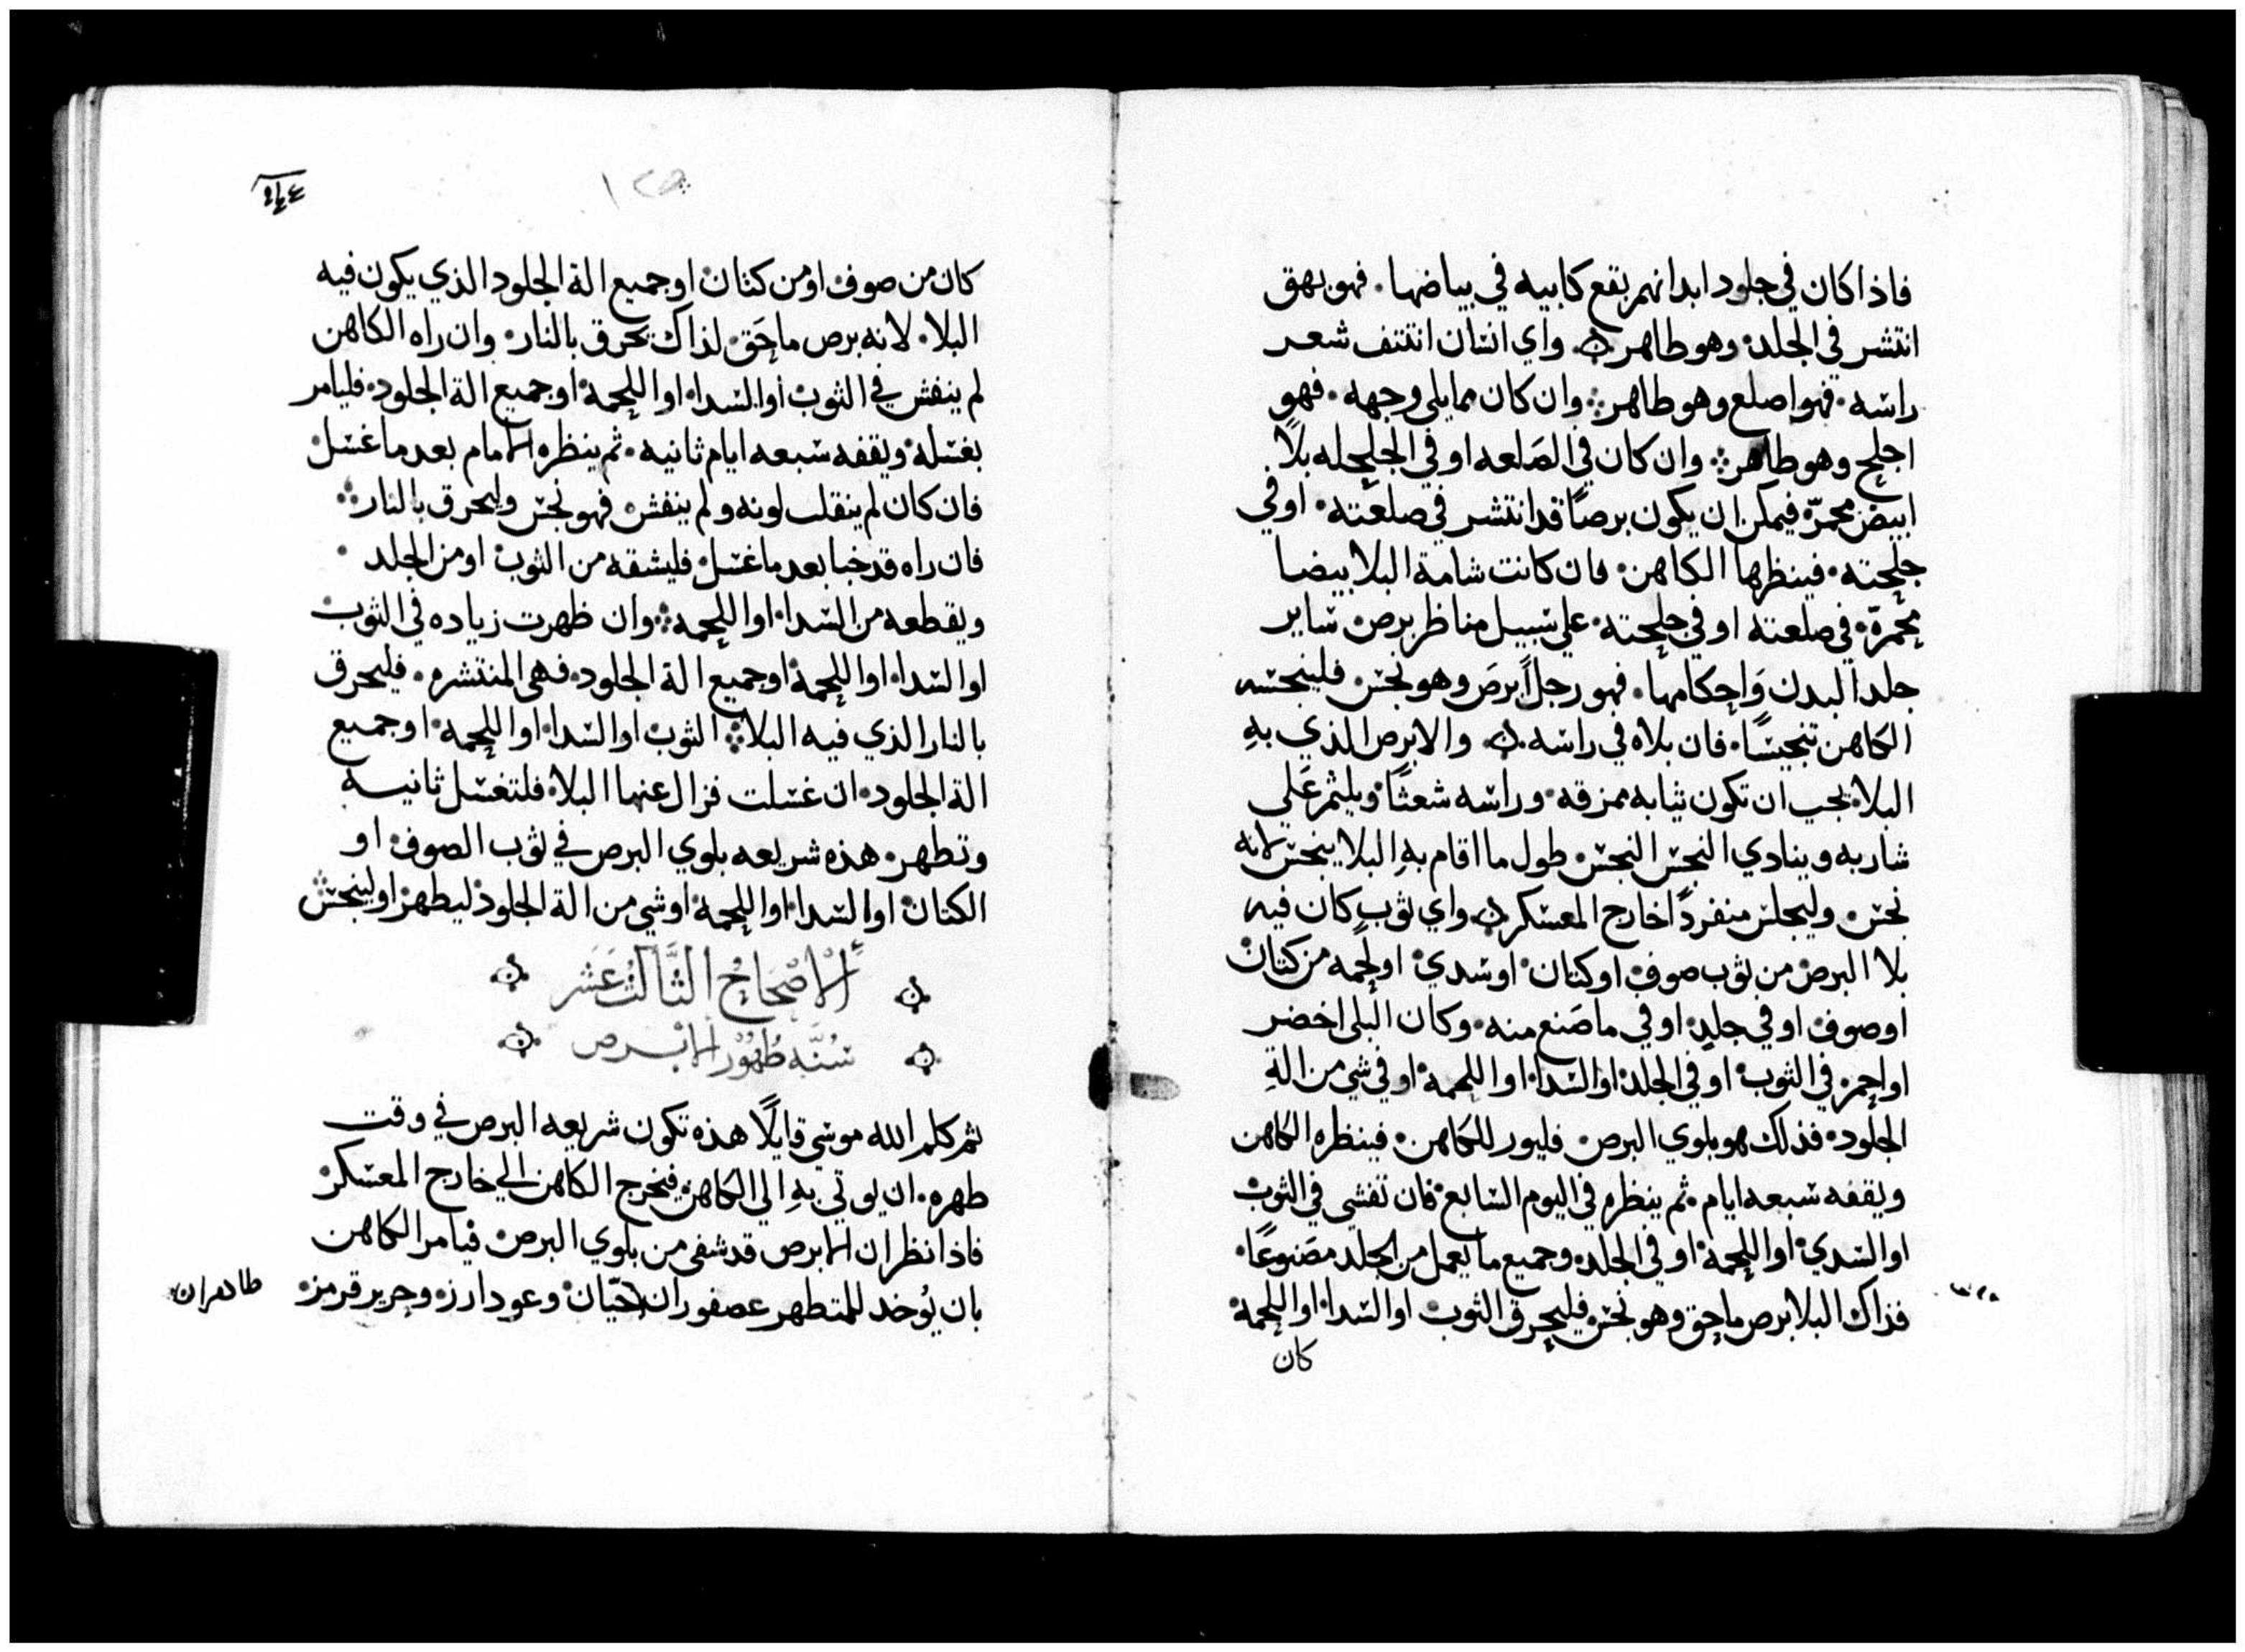 فاذا كان في جلود ابدانهم بقع كابيه في بياضها. فهو بهق
انتشر في الجلد. وهو طاهر واي انسان انتتف شعر
راسه. فهو اصلع وهو طاهر وان كان مما يلي وجهه. فهو
اجلح وهو طاهر وان كان في الصَلعه او في الجلحله بلاً
ابيض محمرّه فيمكن ان يكون برصًا قد انتشر في صلعته. او في
جلحته. فينظرها الكاهن. فان كانت شامة البلا بيضا
محمرّة. في صلعته او في جلحته. علي سبيل مناظر برص ساير
جلد البدن وَاحكامها. فهو رجلاً ابرصَ وهو نجس. فلينجسه
الكاهن تنجيسًا. فان بلاه في راسه. والابرص الذي بهِ
البلا. يجب ان تكون ثيابه ممزقه. وراسه شعثًا. ويلثم عَلي
شاربه وينادي النجس النجس. طول ما اقام بهِ البلا ينجس لانه
نجس. وليجلس منفردًا خارج المعسكر. واي ثوبٍ كان فيه
بلا البرص من ثوب صوف او كتان. او سدي. او لحمه من كتان
او صوف. او في جلدٍ. او في ما صَنع منه. وكان البلي اخضر
او احمر. في الثوب. او في الجلد. او السدا. او اللحمة. او في شي من الةِ
الجلود. فذلك هو بلوي البرص. فليور للكاهن. فينظره الكاهن
ويقفه سبعه ايام. ثم ينظره في اليوم السابع. فان تفشي في الثوب
او السدي. او اللحمة. او في الجلد. وجميع ما يعمل من الجلد مصَنوعًا.
فذاك البلا برص ماحق وهو نجس. فليحرق الثوب او السدا. او اللحمة.
كان
١٢٥
كان من صوف. او من كتان. او جميع الة الجلود الذي يكون فيه
البلا. لانه برص ماحَق. لذاك تحرق بالنار. وان راه الكاهن
لم ينفش في الثوب. او السدا. او اللحمة. او جميع الة الجلود. فليامر
بغسله. ويقفه سبعه ايام ثانيه. ثم ينظره الامام بعد ما غسل.
فان كان لم ينقلب لونه ولم ينفش فهو نجس وليحرق بالنار
فان راه قد خبا بعد ما غسل. فليشقه من الثوب. او من الجلد.
ويقطعه من السدا. او اللحمه وان ظهرت زياده في الثوب
او السدا. او اللحمة. او جميع الة الجلود. فهي المنتشره. فليحرق
بالنار الذي فيه البلا الثوب. او السدا. او اللحمه. او جميع
الة الجلود. ان غسلت فزال عنها البلا. فلتغسل ثانيه
وتطهر. هذه شريعه بلوي البرص في ثوب الصوف. او
الكتان. او السدا. او اللحمة. او شي من الة الجلود. ليطهر. او لينجس
أَلْاصْحَاحُ الثَّالثُ عَشَر
سُنَّه طُهوْر الابرص
ثم كلم الله موسي قايلًا هذه تكون شريعه البرص في وقت
طهره. ان يوتي بهِ الي الكاهن. فيخرج الكاهن الي خارج المعسكر.
فاذا نظر ان الابرص قد شفي من بلوي البرص. فيامر الكاهن
بان يُوخد للمتطهر عصفوران حيّان. وعود ارز. وحرير قرمز. طاهران